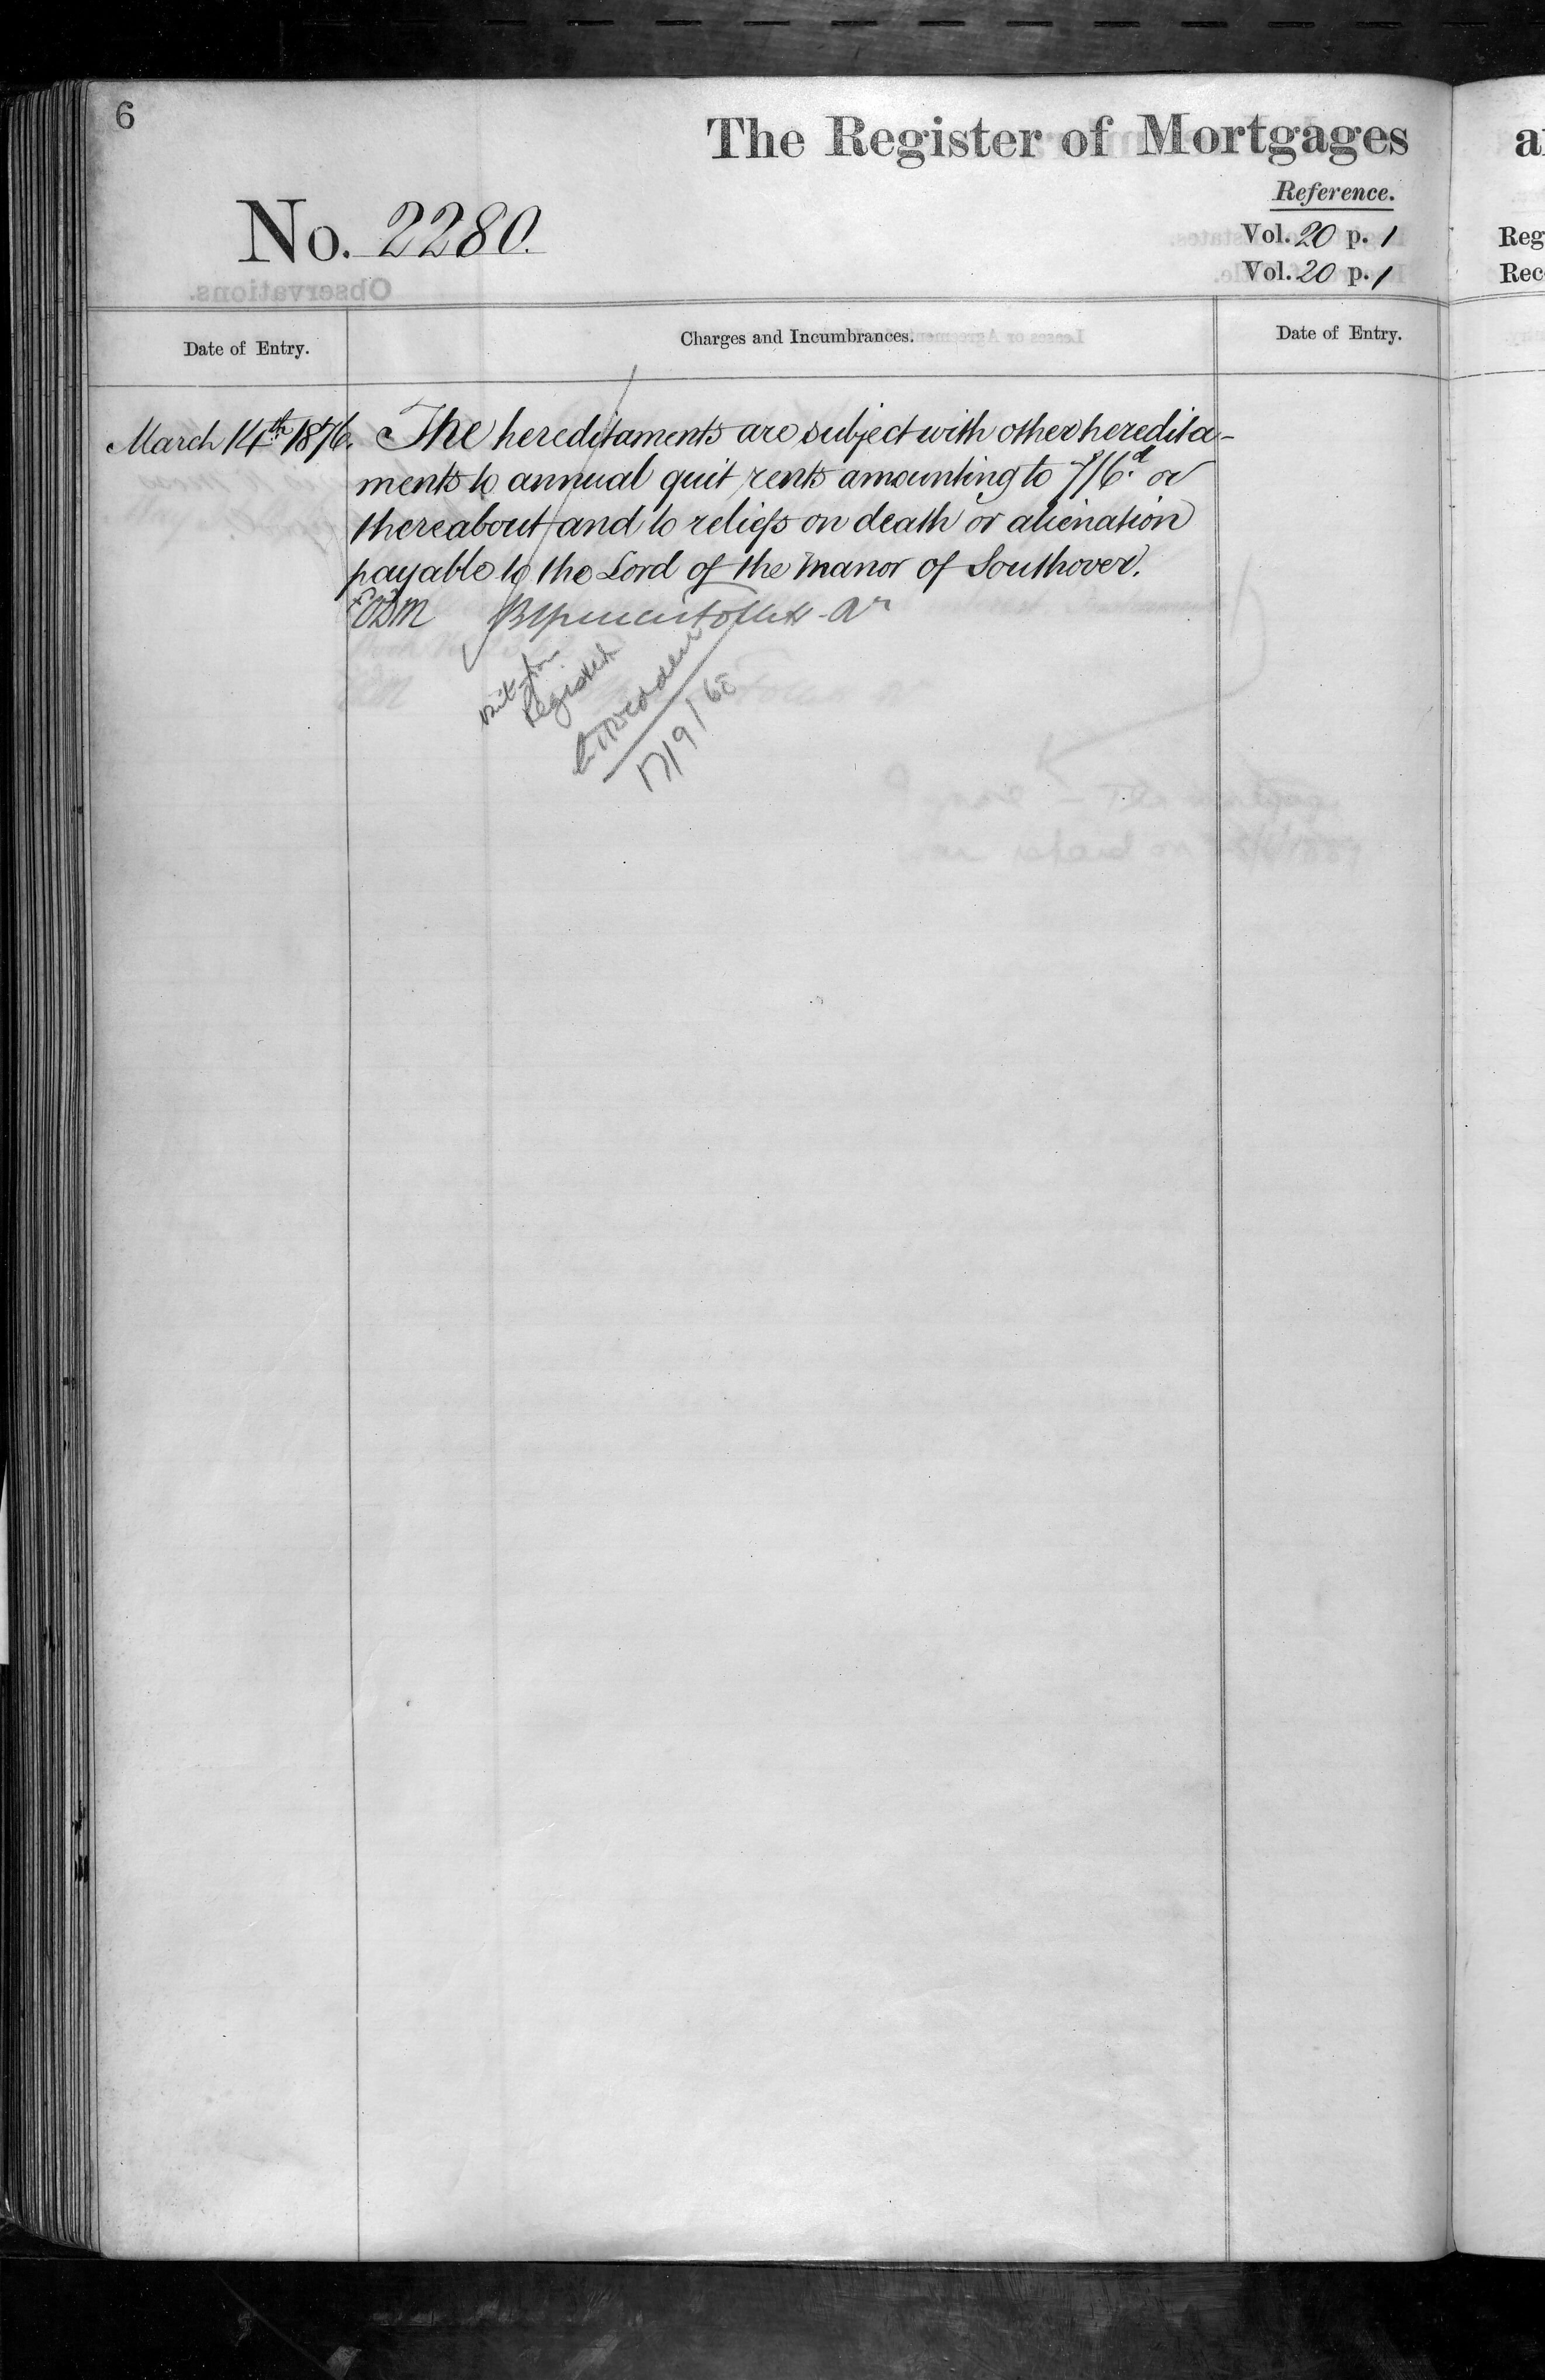 6
The Register of Mortgages
Reference.
No. 2280.
Vol. 20 p. 1
Vol. 20 p. 1
Date of Entry.
Charges and Incumbrances.
Date of Entry.
March 14th 1876. The hereditaments are subject with other heredita-
ments to annual quit rents amounting to 7/6d. or
thereabout and to reliefs on death or alienation
payable to the Lord of the Manor of Southover.
EBM
Register
17/9/68
a
Reg
Rec